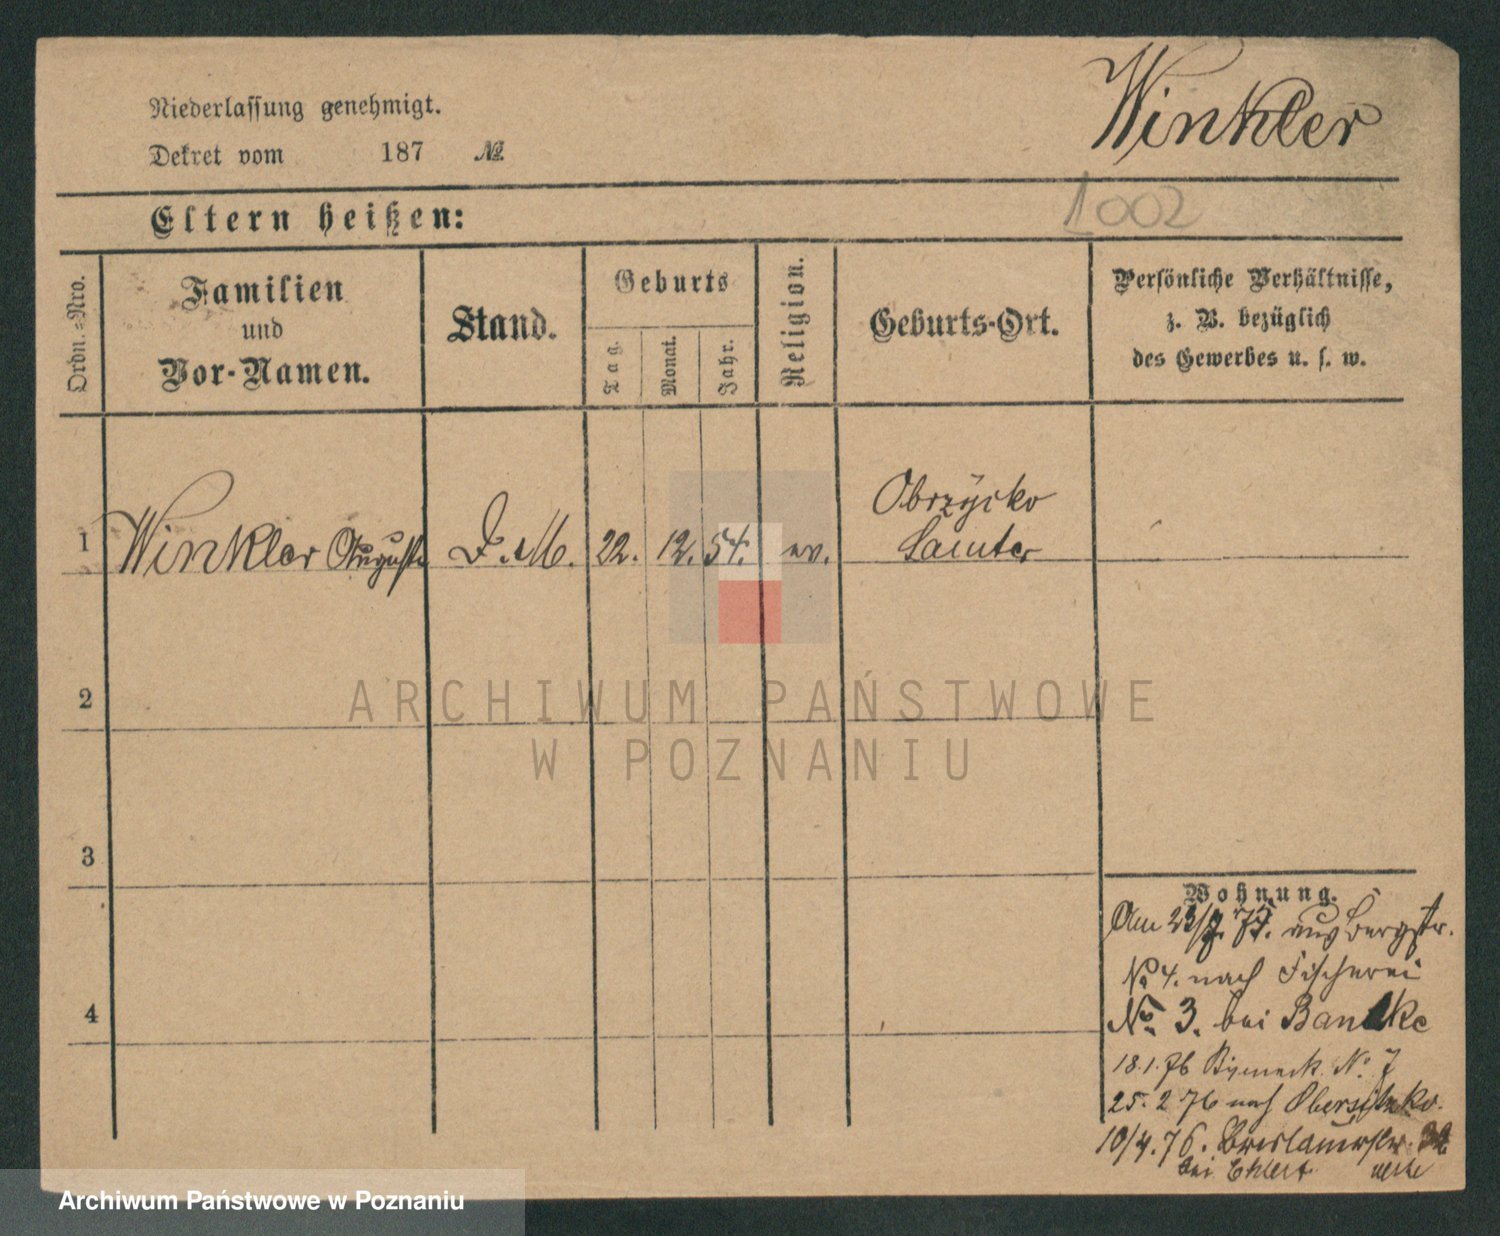 Winkler
Niederlassung genehmigt.
Dekret vom 187 №
1002
Eltern heißen:
Ordn.=Nro.
Familien
und
Vor-Namen.
Stand.
Geburts
Tag.
Monat.
Jahr.
Religion.
Geburts-Ort.
Persönliche Verhältnisse,
z. B. bezüglich
des Gewerbes u. s. w.
Obrzycko
1 Winkler Auguste D. M. 22. 12. 54. ev. Samter
2
ARCHIWUM PAŃSTWOWE
W POZNANIU
3
Wohnung.
Am 75. aus Bergstr.
№ 4. nach Fischerei
4
№ 3. bei
18.1.76 № 7
25. 2 76 nach
10/4. 76. Breslauerstr.
bei Ehlert
Archiwum Państwowe w Poznaniu